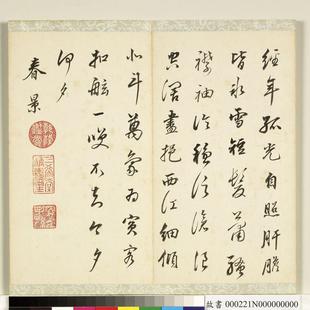 經年孤光自照肝膽
皆冰雪短髮蕭騷
襟袖冷穩泛滄浪
空闊盡挹西江細傾
北斗萬象為賓客
扣舷一笑不知今夕
何夕
春景
故書 000221N000000000